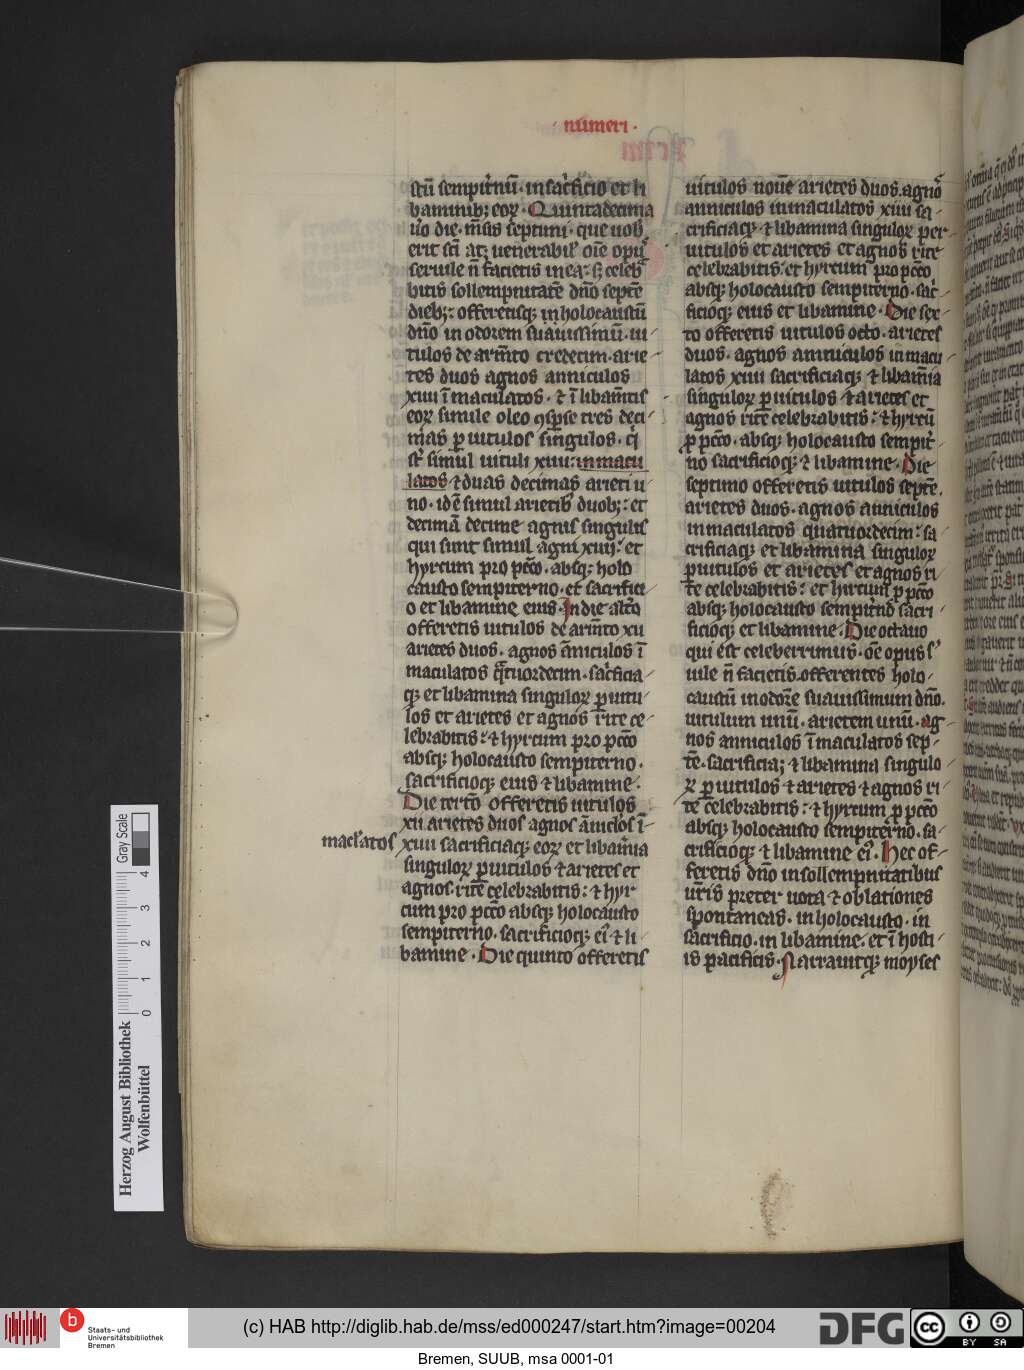 · numeri ·
stū sempit̄nū · in sac̄ficio et li
baminib; eoꝝ · Quintadecima
ũo die · mēsis septimi · que uob̄
erit sc̄ī atꝫ uenerabil̄ · oīe opꝰ
seruile n̄ facietis in ea · sꝫ celeb̾
bitis sollempnitatē dn̄o septē
dieb; : offeretisqꝫ in holocaustū
dn̄o in odorem suauissimū · ui
tulos de arm̄to tredecim · arie
tes duos agnos anniculos
xiiii īmaculatos · ⁊ ī libam̄tis
eoꝝ simile oleo ꝯsp̄se tres deci
mas ꝑ uitulos singulos · qi
sr̄ simul uituli xiiii : inmacu
latos ⁊ duas decimas arieti u
no · idē simul arietib̾ duob; : et
decimā decime agnis singulis
qui sunt simul agni xiiii : et
hyrcum pro pc̄co · absqꝫ holo
causto sempiterno · et sacrifici
o et libamine eius · In die alt̄o
offeretis uitulos de arm̄to xii
arietes duos · agnos āniculos ī
maculatos qͣtuordecim · sac̄ficia
qꝫ et libamina singuloꝝ ꝑ uitu
los et arietes et agnos rite ce
lebrabitis : ⁊ hyrcum pro pc̄co
absqꝫ holocausto sempiterno ·
sacrificioqꝫ eius ⁊ libamine ·
Die tertō offeretis uitulos
xii arietes duos agnos āniclos ī
maclatos xiiii sacrificiaqꝫ eoꝝ et libam̄ia
singuloꝝ ꝑ uitulos ⁊ arietes et
agnos · ritē celebrabitis : ⁊ hyr
cum pro pc̄co absqꝫ holocausto
sempiterno · sacrificioqꝫ ei̾ ⁊ li
bamine · Die quinto offeretis
uitulos nouē arietes duos · agno̾
anniculos inmaculatos xiiii sa
crificiaqꝫ · ⁊ libamina singuloꝝ per
uitulos et arietes et agnos rite
celebrabitis : et hyrcum pro pc̄co
absqꝫ holocausto sempiterno · sac̄
ficioqꝫ eius et libamine · Die sex
to offeretis uitulos octo · arietes
duos · agnos anniculos inmacu
latos xiiii sacrificiaqꝫ ⁊ libam̄ia
singuloꝝ ꝑ uitulos ⁊ arietes et
agnos ritē celebrabitis : ⁊ hyrcū
ꝓ pc̄co · absqꝫ holocausto sempit̄
no sacrificioqꝫ ⁊ libamine · Die
septimo offeretis uitulos septē ·
arietes duos · agnos anniculos
inmaculatos quatuordecim : sa
crificiaqꝫ et libamina singuloꝝ
ꝑ uitulos et arietes et agnos ri
te celebrabitis : et hircum ꝓ pc̄co
absqꝫ holocausto sempit̄no sacri
ficioqꝫ et libamine · Die octauo
qui est celeberrimus · oē opus s̾
uile n̄ facietis · offerentes holo
caustū in odorē suauissimum dn̄o ·
uitulum unū · arietem unū · ag
nos anniculos īmaculatos sep
tē · sacrificia; ⁊ libamina singulo
ꝝ ꝑ uitulos ⁊ arietes ⁊ agnos ri
te celebrabitis : ⁊ hyrcum ꝓ pc̄co
absqꝫ holocausto sempiterno · sa
crificioqꝫ ⁊ libamine ei̾ · Hec of
feretis dn̄o in sollempnitatibus
ur̄is preter uota ⁊ oblationes
spontaneas · in holocausto · in
sacrificio · in libamine · et ī hosti
is pacificis · Narrauitqꝫ moyses
Gray Scale
4 3 2 1 0
Herzog August Bibliothek
Wolfenbüttel
b
Staats- und
Universitätsbibliothek
Bremen
(c) HAB http://diglib.hab.de/mss/ed000247/start.htm?image=00204
DFG
cc BY SA
Bremen, SUUB, msa 0001-01